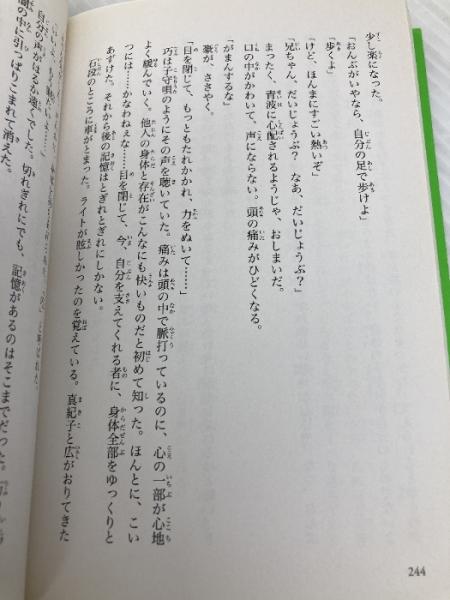 少し楽になった。
「おんぶがいやなら、自分の足で歩けよ」
「歩くよ」
「けど、ほんまにすごい熱いぞ」
「兄ちゃん、だいじょうぶ？ なあ、だいじょうぶ？」
まったく、青波に心配されるようじゃ、おしまいだ。
口の中がかわいて、声にならない。頭の痛みがひどくなる。
「がまんするな」
豪が、ささやく。
「目を閉じて、もっともたれかかれ、力をぬいて……」
巧は子守唄のようにその声を聴いていた。痛みは頭の中で脈打っているのに、心の一部が心地
よく緩んでいく。他人の身体と存在がこんなにも快いものだと初めて知った。ほんとに、こい
つには……かなわねえな……目を閉じて、今、自分を支えてくれる者に、身体全部をゆっくりと
あずけた。それから後の記憶はとぎれとぎれにしかない。
石段のところに車がとまった。ライトが眩しかったのを覚えている。真紀子と広がおりてきた
自分の声がはるか遠くでした。切れぎれにでも、記憶があるのはそこまでだった。
の中に引っぱりこまれて消えた。
244